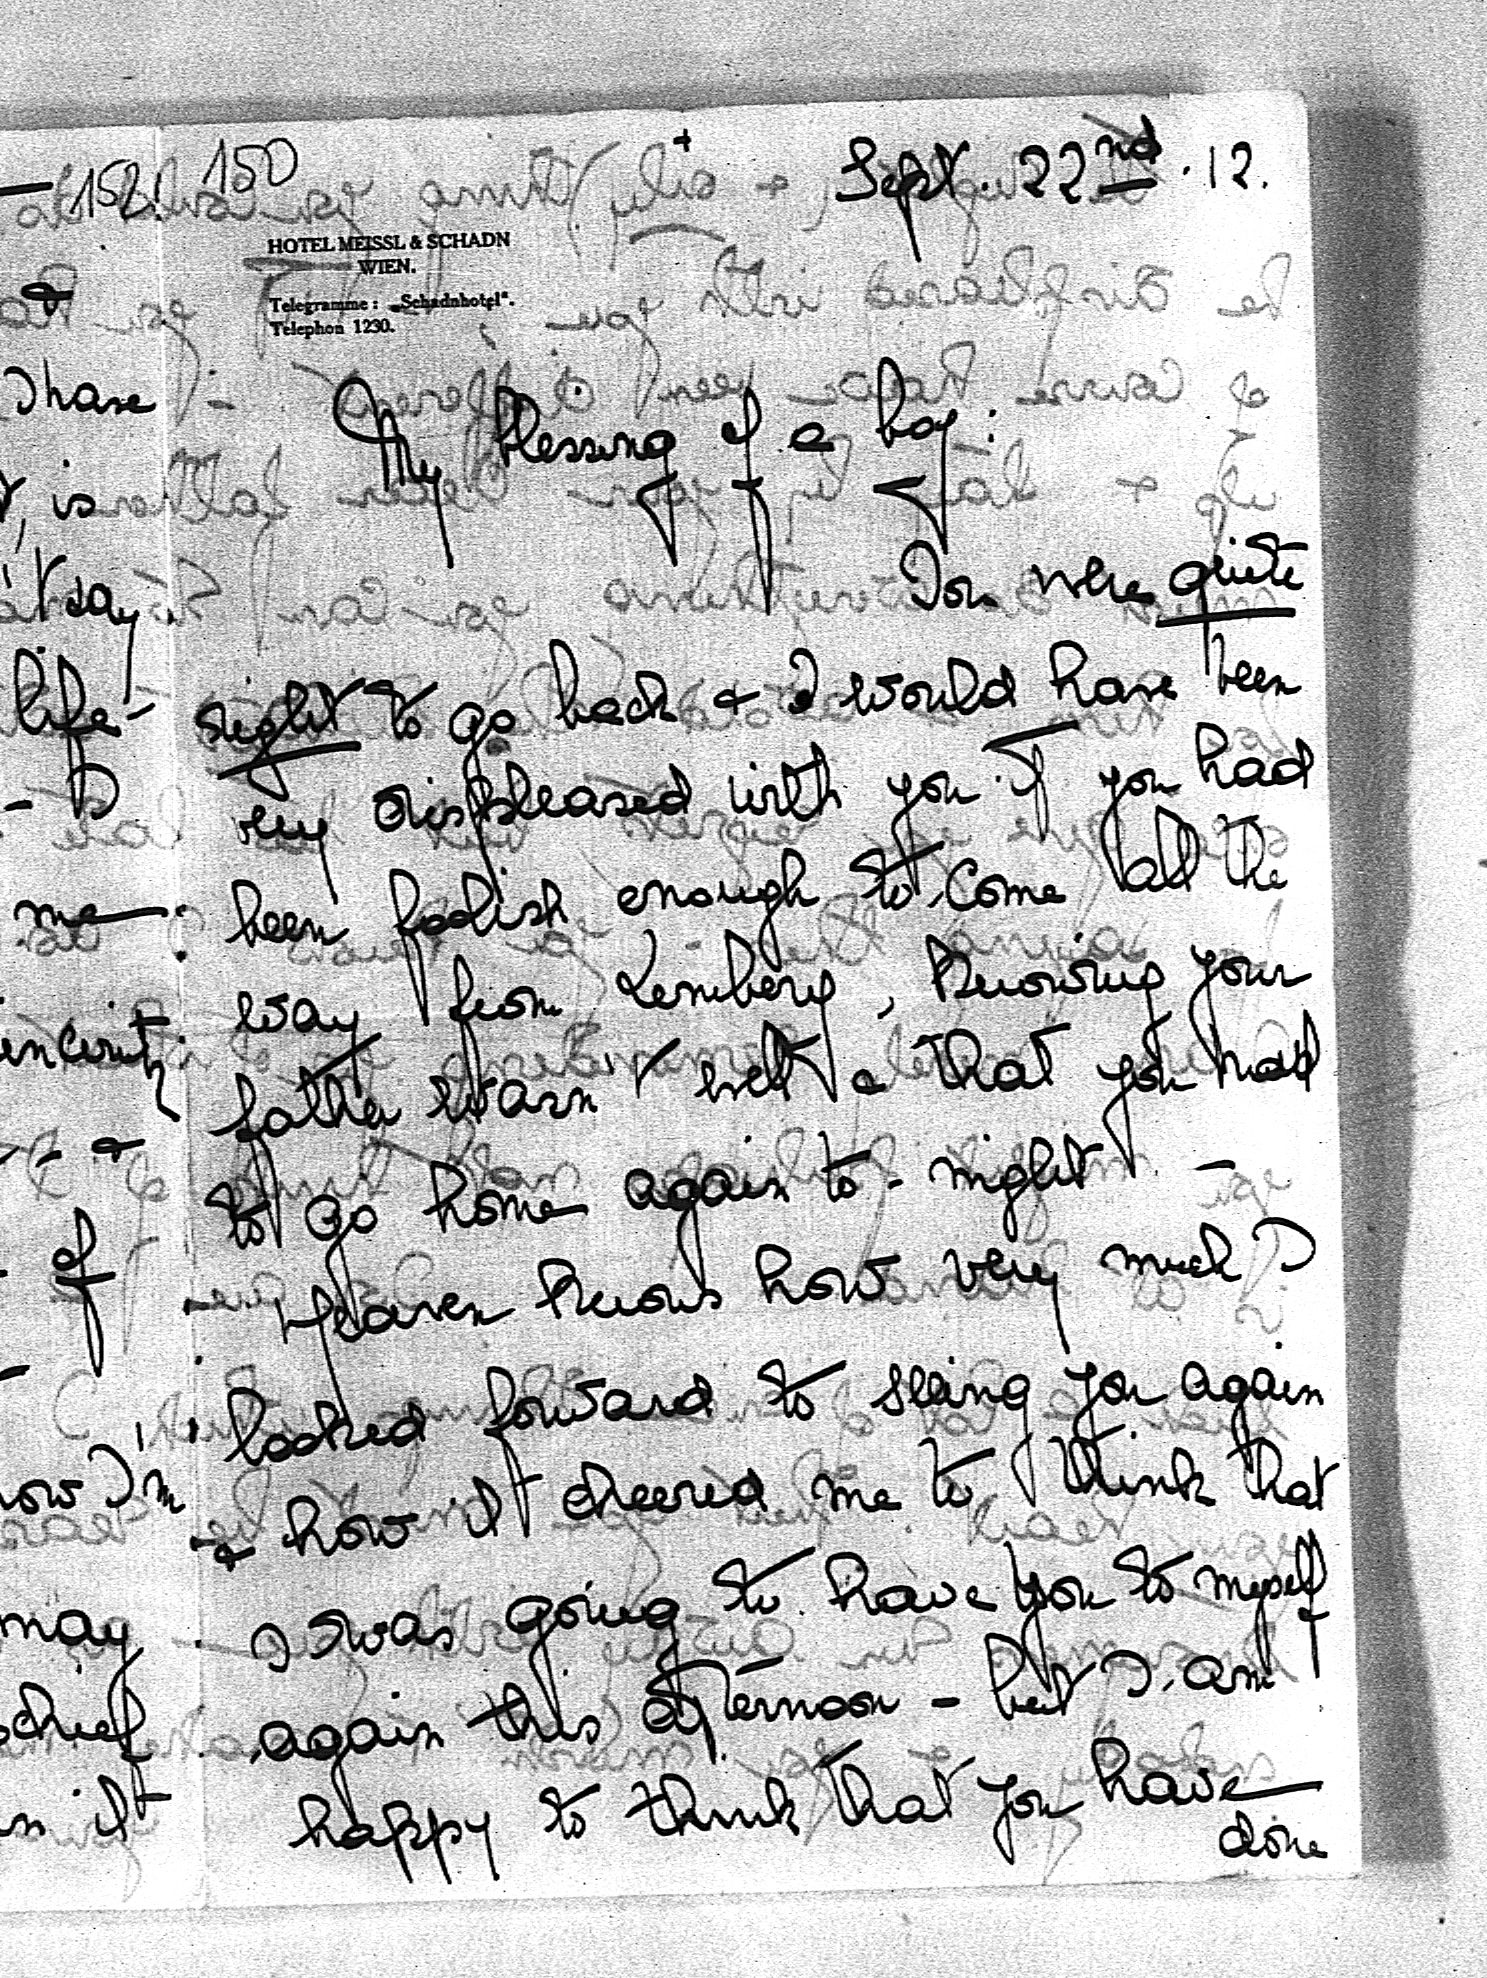 152. 150
Sept. 22nd. 12.
HOTEL MEISSL & SCHADN
WIEN.
Telegramme: „Schadnhotel“.
Telephon 1230.
My blessing of a boy:
You were quite
right to go back & I would have been
very displeased with you if you had
been foolish enough to come all the
way from Lemberg, knowing your
father wasn't well & that you had
to go home again to-night –
Heaven knows how very much I
looked forward to seeing you again
& how it cheered me to think that
I was going to have you to myself
again this afternoon – but I am
happy to think that you have
done
I have
is
't say
life –
– I
me
– &
of
now I'm
may
chief
it